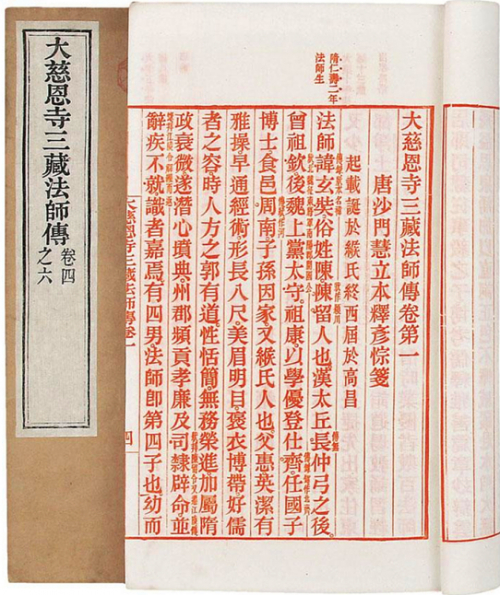 大慈恩寺三藏法師傳
卷四之六
大慈恩寺三藏法師傳卷第一
唐沙門慧立本釋彥悰箋
起載誕於緱氏終西屆於高昌
隋仁壽二年
法師生
法師諱玄奘俗姓陳陳留人也漢太丘長仲弓之後
曾祖欽後魏上黨太守祖康以學優登仕齊任國子
博士食邑周南子孫因家又緱氏人也父惠英潔有
雅操早通經術形長八尺美眉明目褒衣博帶好儒
者之容時人方之郭有道性恬簡無務榮進加屬隋
政衰微遂潛心墳典州郡頻貢孝廉及司隸辟命並
辭疾不就識者嘉焉有四男法師即第四子也幼而
大慈恩寺三藏法師傳卷一
四